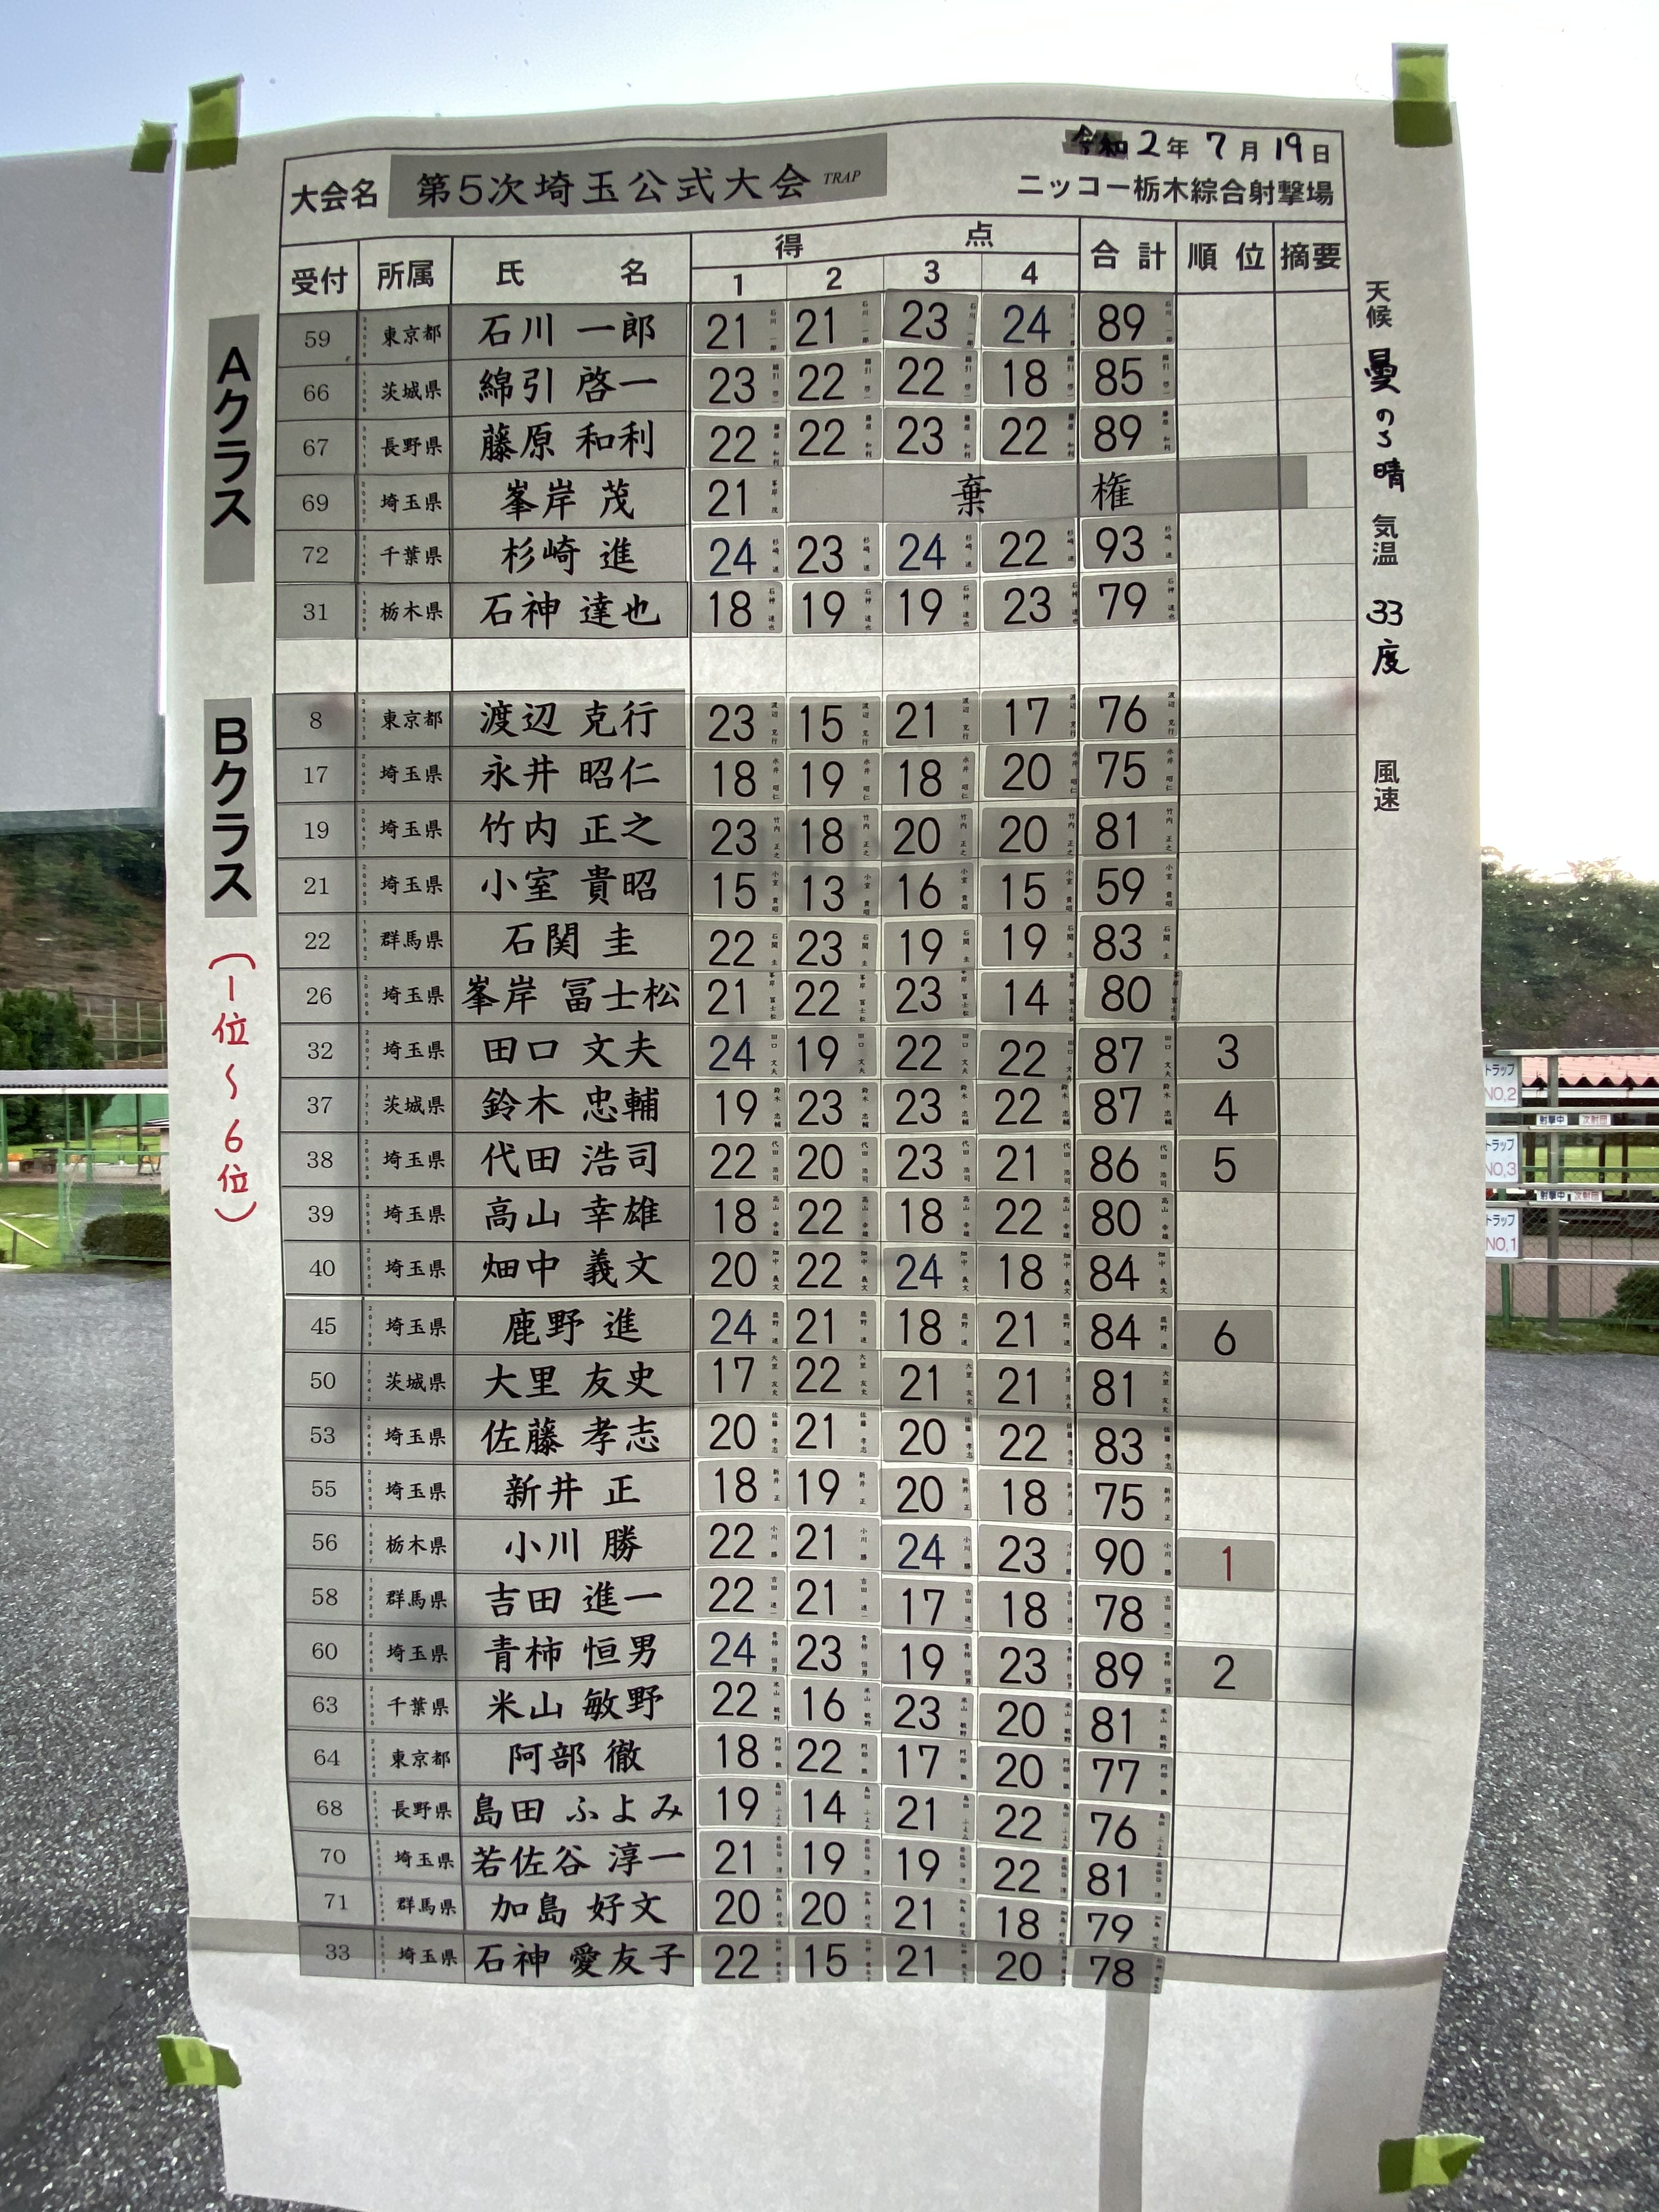 令和2年7月19日
大会名 第5次埼玉公式大会 TRAP
ニッコー栃木綜合射撃場
受付 所属 氏名 得点 合計 順位 摘要
1 2 3 4
Aクラス
59 東京都 石川 一郎 21 21 23 24 89
66 茨城県 綿引 啓一 23 22 22 18 85
67 長野県 藤原 和利 22 22 23 22 89
69 埼玉県 峯岸 茂 21 棄権
72 千葉県 杉崎 進 24 23 24 22 93
31 栃木県 石神 達也 18 19 19 23 79
Bクラス
(1位~6位)
8 東京都 渡辺 克行 23 15 21 17 76
17 埼玉県 永井 昭仁 18 19 18 20 75
19 埼玉県 竹内 正之 23 18 20 20 81
21 埼玉県 小室 貴昭 15 13 16 15 59
22 群馬県 石関 圭 22 23 19 19 83
26 埼玉県 峯岸 冨士松 21 22 23 14 80
32 埼玉県 田口 文夫 24 19 22 22 87 3
37 茨城県 鈴木 忠輔 19 23 23 22 87 4
38 埼玉県 代田 浩司 22 20 23 21 86 5
39 埼玉県 高山 幸雄 18 22 18 22 80
40 埼玉県 畑中 義文 20 22 24 18 84
45 埼玉県 鹿野 進 24 21 18 21 84 6
50 茨城県 大里 友史 17 22 21 21 81
53 埼玉県 佐藤 孝志 20 21 20 22 83
55 埼玉県 新井 正 18 19 20 18 75
56 栃木県 小川 勝 22 21 24 23 90 1
58 群馬県 吉田 進一 22 21 17 18 78
60 埼玉県 青柿 恒男 24 23 19 23 89 2
63 千葉県 米山 敏野 22 16 23 20 81
64 東京都 阿部 徹 18 22 17 20 77
68 長野県 島田 ふよみ 19 14 21 22 76
70 埼玉県 若佐谷 淳一 21 19 19 22 81
71 群馬県 加島 好文 20 20 21 18 79
33 埼玉県 石神 愛友子 22 15 21 20 78
天候 曇のち晴 気温 33度 風速
トラップ
NO,2
射撃中 次射団
トラップ
NO,3
射撃中 次射団
トラップ
NO,1